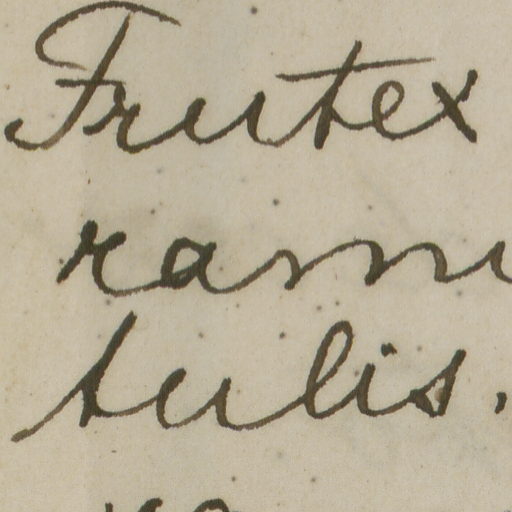 Frutex
ramu
tulis,